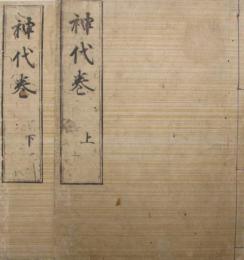 神代巻
上
神代巻
下